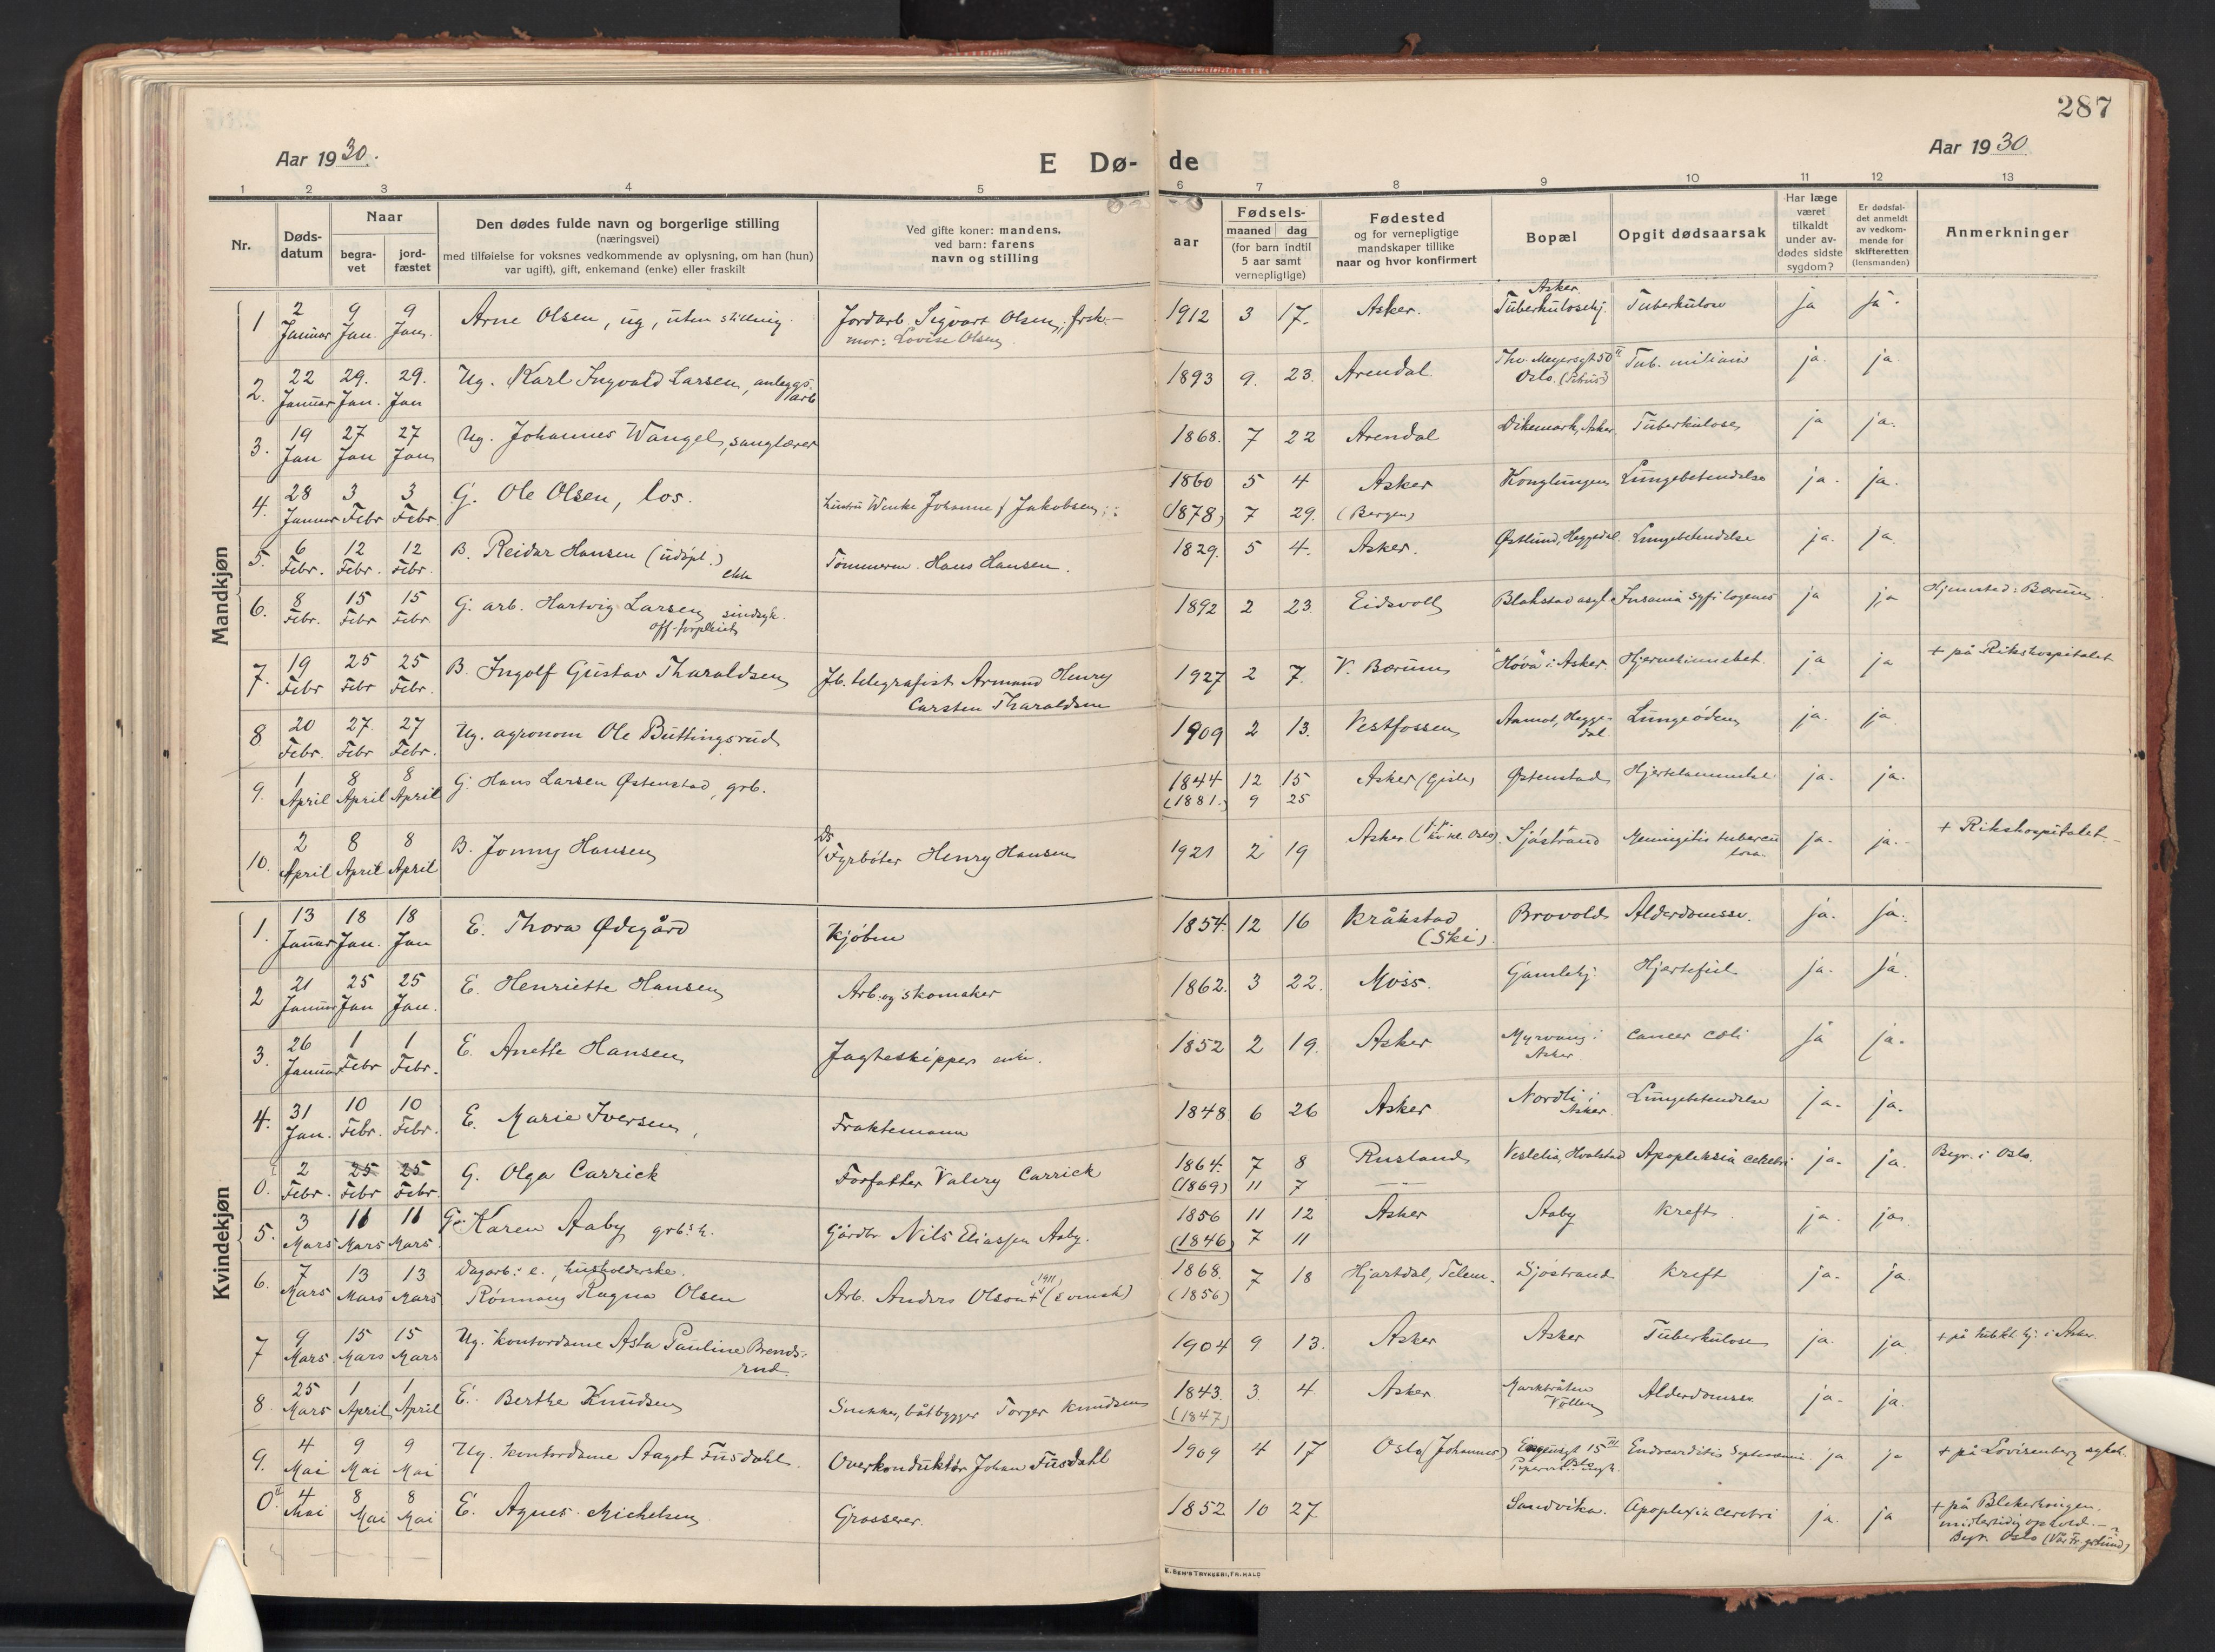 287
Aar 1930.
E Dø-
de
Aar 1930
1 2 3 4 5 6 7 8 9 10 11 12 13
Nr.
Døds-
datum
Naar
begra-
vet
jord-
fæstet
Den dødes fulde navn og borgerlige stilling
(næringsvei)
med tilføielse for voksnes vedkommende av oplysning, om han (hun)
var ugift), gift, enkemand (enke) eller fraskilt
Ved gifte koner: mandens,
ved barn: farens
navn og stilling
aar
Fødsels-
maaned dag
(for barn indtil
5 aar samt
vernepligtige)
Fødested
og for vernepligtige
mandskaper tillike
naar og hvor konfirmert
Bopæl
Opgit dødsaarsak
Har læge
været
tilkaldt
under av-
dødes sidste
sygdom?
Er dødsfal-
det anmeldt
av vedkom-
mende for
skifteretten
(lensmanden)
Anmerkninger
Mandkjøn
1 2 Januar 9 Jan. 9 Jan. Arne Olsen, ug, uten stilling. Jordarb. Sigvart Olsen, frsk.
mor: Lovise Olsen. 1912 3 17. Asker. Asker Tuberkulosehj. Tuberkulose ja ja.
2. 22 Januar 29. Jan. 29. Jan Ug. Karl Ingvald Larsen, anleggs-
arb 1893 9. 23. Arendal Thv. Meyersgt 50 II
Oslo. Tub. miliaris ja. ja.
3. 19 Jan 27 Jan 27 Jan Ug. Johannes Wangel, sanglærer 1868. 7 22 Arendal Dikemark, Asker. Tuberkulose ja ja.
4. 28 Januar 3 Febr 3 Febr. G. Ole Olsen, los. hustru Wenke Johanne f Jakobsen 1860 5 4 Asker Konglungen Lungebetendelse ja. ja.
(1878) 7 29. (Bergen)
5. 6 Febr. 12 Febr. 12 Febr. B. Reidar Hansen (udøpt.)
ekte Tømmerm. Hans Hansen. 1829. 5 4. Asker. Østlund, Heggedal. Lungebetendelse ja. ja.
6. 8 Febr. 15 Febr 15 Febr G. arb. Hartvig Larsen, sindsyk.
off. forpleiet 1892 2 23. Eidsvoll Blakstad asyl Insania syfilogenes ja ja Hjemsted: Bærum.
7. 19 Febr 25 Febr 25 Febr. B. Ingolf Gustav Tharaldsen Jb. telegrafist Armand Henry
Carsten Tharaldsen 1927 2 7. V. Bærum "Hova" i Asker Hjernehinnebet. ja ja + på Rikshospitalet
8 20 Febr. 27. Febr 27 Febr. Ug. agronom Ole Buttingsrud 1909 2 13. Vestfossen Aamot, Hegge-
dal Lungeødem ja. ja
9. 1 April 8 April 8 April G. Hans Larsen Østenstad, grb. 1844 12 15 Asker (Gisle) Østenstad Hjertelammelse ja. ja.
(1881.) 9 25
10. 2 April 8 April 8 April B. Jonny Hansen Fyrbøter Henry Hansen 1921 2 19 Asker Sjøstrand Meningitis tubercu
losa ja. ja. + Rikshospitalet.
Kvindekjøn
1. 13 Januar 18 Jan. 18 Jan E. Thora Ødegård Kjøbm 1854. 12 16 Kråkstad
(Ski). Brovold Alderdomssv. ja. ja.
2 21 Januar 25 Jan 25 Jan. E. Henriette Hansen Arb. og skomaker 1862. 3 22. Moss. Gamlehj. Hjertefeil ja. ja.
3. 26 Januar 1 Febr 1 Febr. E. Anette Hansen Jagteskippers enke. 1852 2 19. Asker Myrvang i
Asker Cancer coli ja ja.
4. 31 Jan. 10 Febr. 10 Febr. E. Marie Iversen, Fraktemann 1848 6 26 Asker Nordli i
Asker. Lungebetendelse ja. ja.
0. 2 Febr. 25 Febr 25 Febr. G. Olga Carrick Forfatter Valery Carrick 1864. 7 8 Rusland Veslelia, Hvalstad Apopleksia cerebri ja. ja. Begr. i Oslo.
(1869) 11 7
5. 3 Mars 11 Mars 11 Mars G. Karen Aaby grb: h. Gårdbr Nils Eliassen Aaby. 1856 11 12 Asker Aaby Kreft ja. ja.
(1846) 7 11
6. 7 Mars 13 Mars 13 Mars Dagarb: e., husholderske.
Rønnaug Ragna Olsen Arb. Anders Olson + (1911) (svensk) 1868. 7 18 Hjartdal, Telem. Sjøstrand Kreft ja. ja.
(1856)
7 9 Mars 15 Mars 15 Mars Ug. Kontordame Asta Pauline Brends-
rud 1904 9 13. Asker Asker Tuberkulose ja. ja + på tubkl hj. i Asker.
8 25 Mars 1 April 1 April E. Berthe Knudsen Snekker, båtbygger Torger Knudsen 1843. 3. 4. Asker
Vollen Alderdomssv. ja. ja.
(1847)
9. 4 Mai 9 Mai 9 Mai Ug. kontordame Aagot Fusdahl. Overkonduktør Johan Fusdahl 1909 4 17 Oslo (Johannes) 15 III Endocarditis ja. ja + på Lovisenberg sykeh.
0 II 4 Mai 8 Mai 8 Mai E. Agnes Michelsen Grosserer. 1852 10 27 Sandvika. Apoplexia cerebri ja. ja + på Blekerhaugen.
midlertidig ophold.
Begr. Oslo (Vår Fr. grlund)
E. SEM'S TRYKKERI, FR. HALD